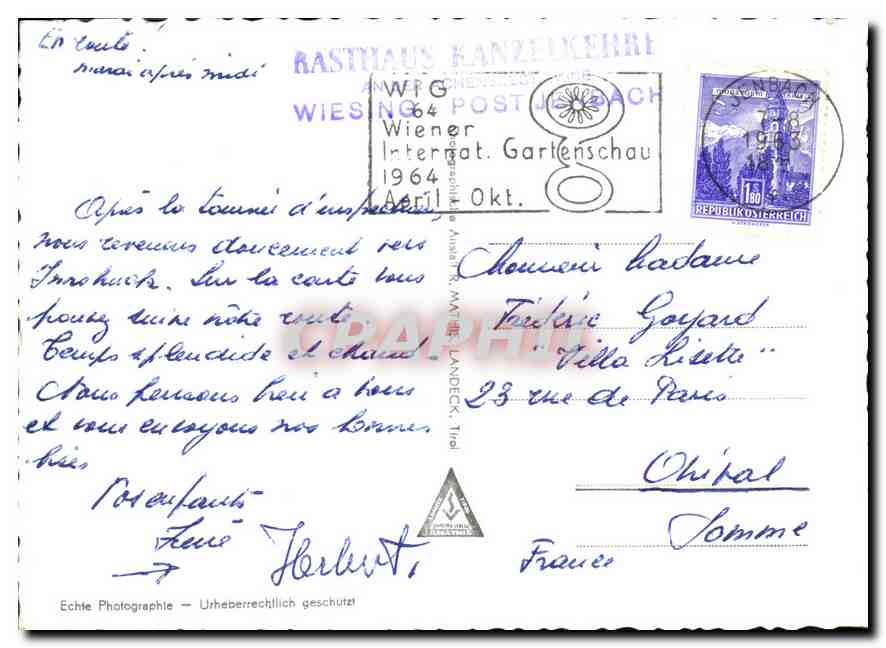 En route.
mardi après midi
RASTHAUS KANZELKEHRE
AN DER ACHENSEESTRASSE
WIESING POST JENBACH
WIG
64
Wiener
Internat. Gartenschau
1964
April - Okt.
JENBACH
7-8
1963
18
REPUBLIK ÖSTERREICH
Après la tournée d'inspection,
nous revenons doucement vers
Innsbruck. Sur la carte vous
pouvez suivre nôtre route
Temps splendide et chaud.
Nous pensons bien a vous
et vous envoyons nos bonnes
bises
Vos enfants
René
Herbert.
Photographische Anstalt R. MATHIS, LANDECK, Tirol
CPAPHIL
Monsieur Madame
Frédéric Goyard
"Villa Lisette"
23 rue de Paris
Somme
France
Echte Photographie — Urheberrechtlich geschützt